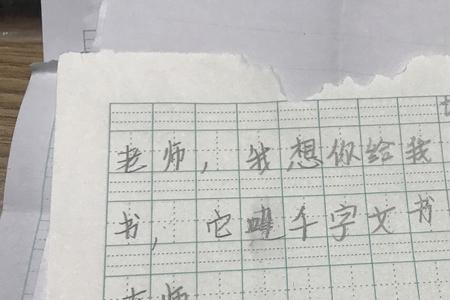 老师，我想你给我
书，它 千字文书
老师